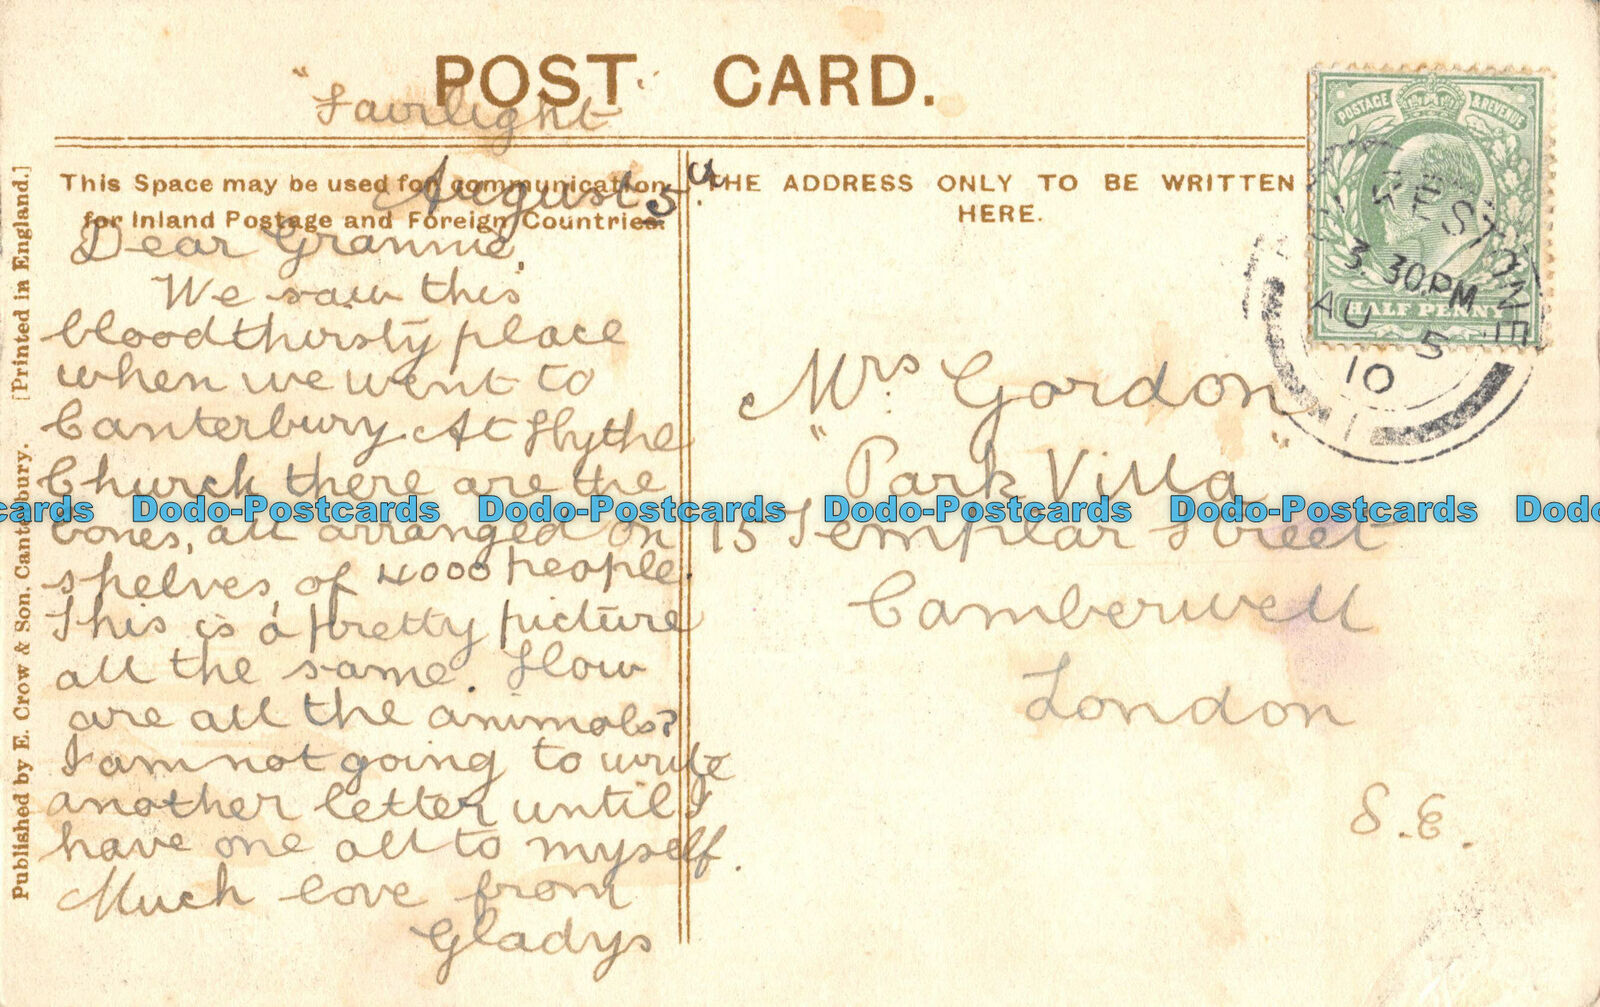 POST CARD.
"Fairlight"
This Space may be used for communication
for Inland Postage and Foreign Countries.
August 5th
Dear Grannie,
We saw this
bloodthirsty place
when we went to
Canterbury. At Hythe
Church there are the
bones, all arranged on
shelves, of 4000 people.
This is a pretty picture
all the same. How
are all the animals?
I am not going to write
another letter until I
have one all to myself.
Much love from
Gladys
THE ADDRESS ONLY TO BE WRITTEN
HERE.
Mrs. Gordon
"Park Villa"
15 Templar Street
Camberwell
London
S.E.
POSTAGE & REVENUE
HALF PENNY
3.30PM
AU 5
10
1
[Printed in England.]
Published by E. Crow & Son, Canterbury.
Dodo-Postcards Dodo-Postcards Dodo-Postcards Dodo-Postcards